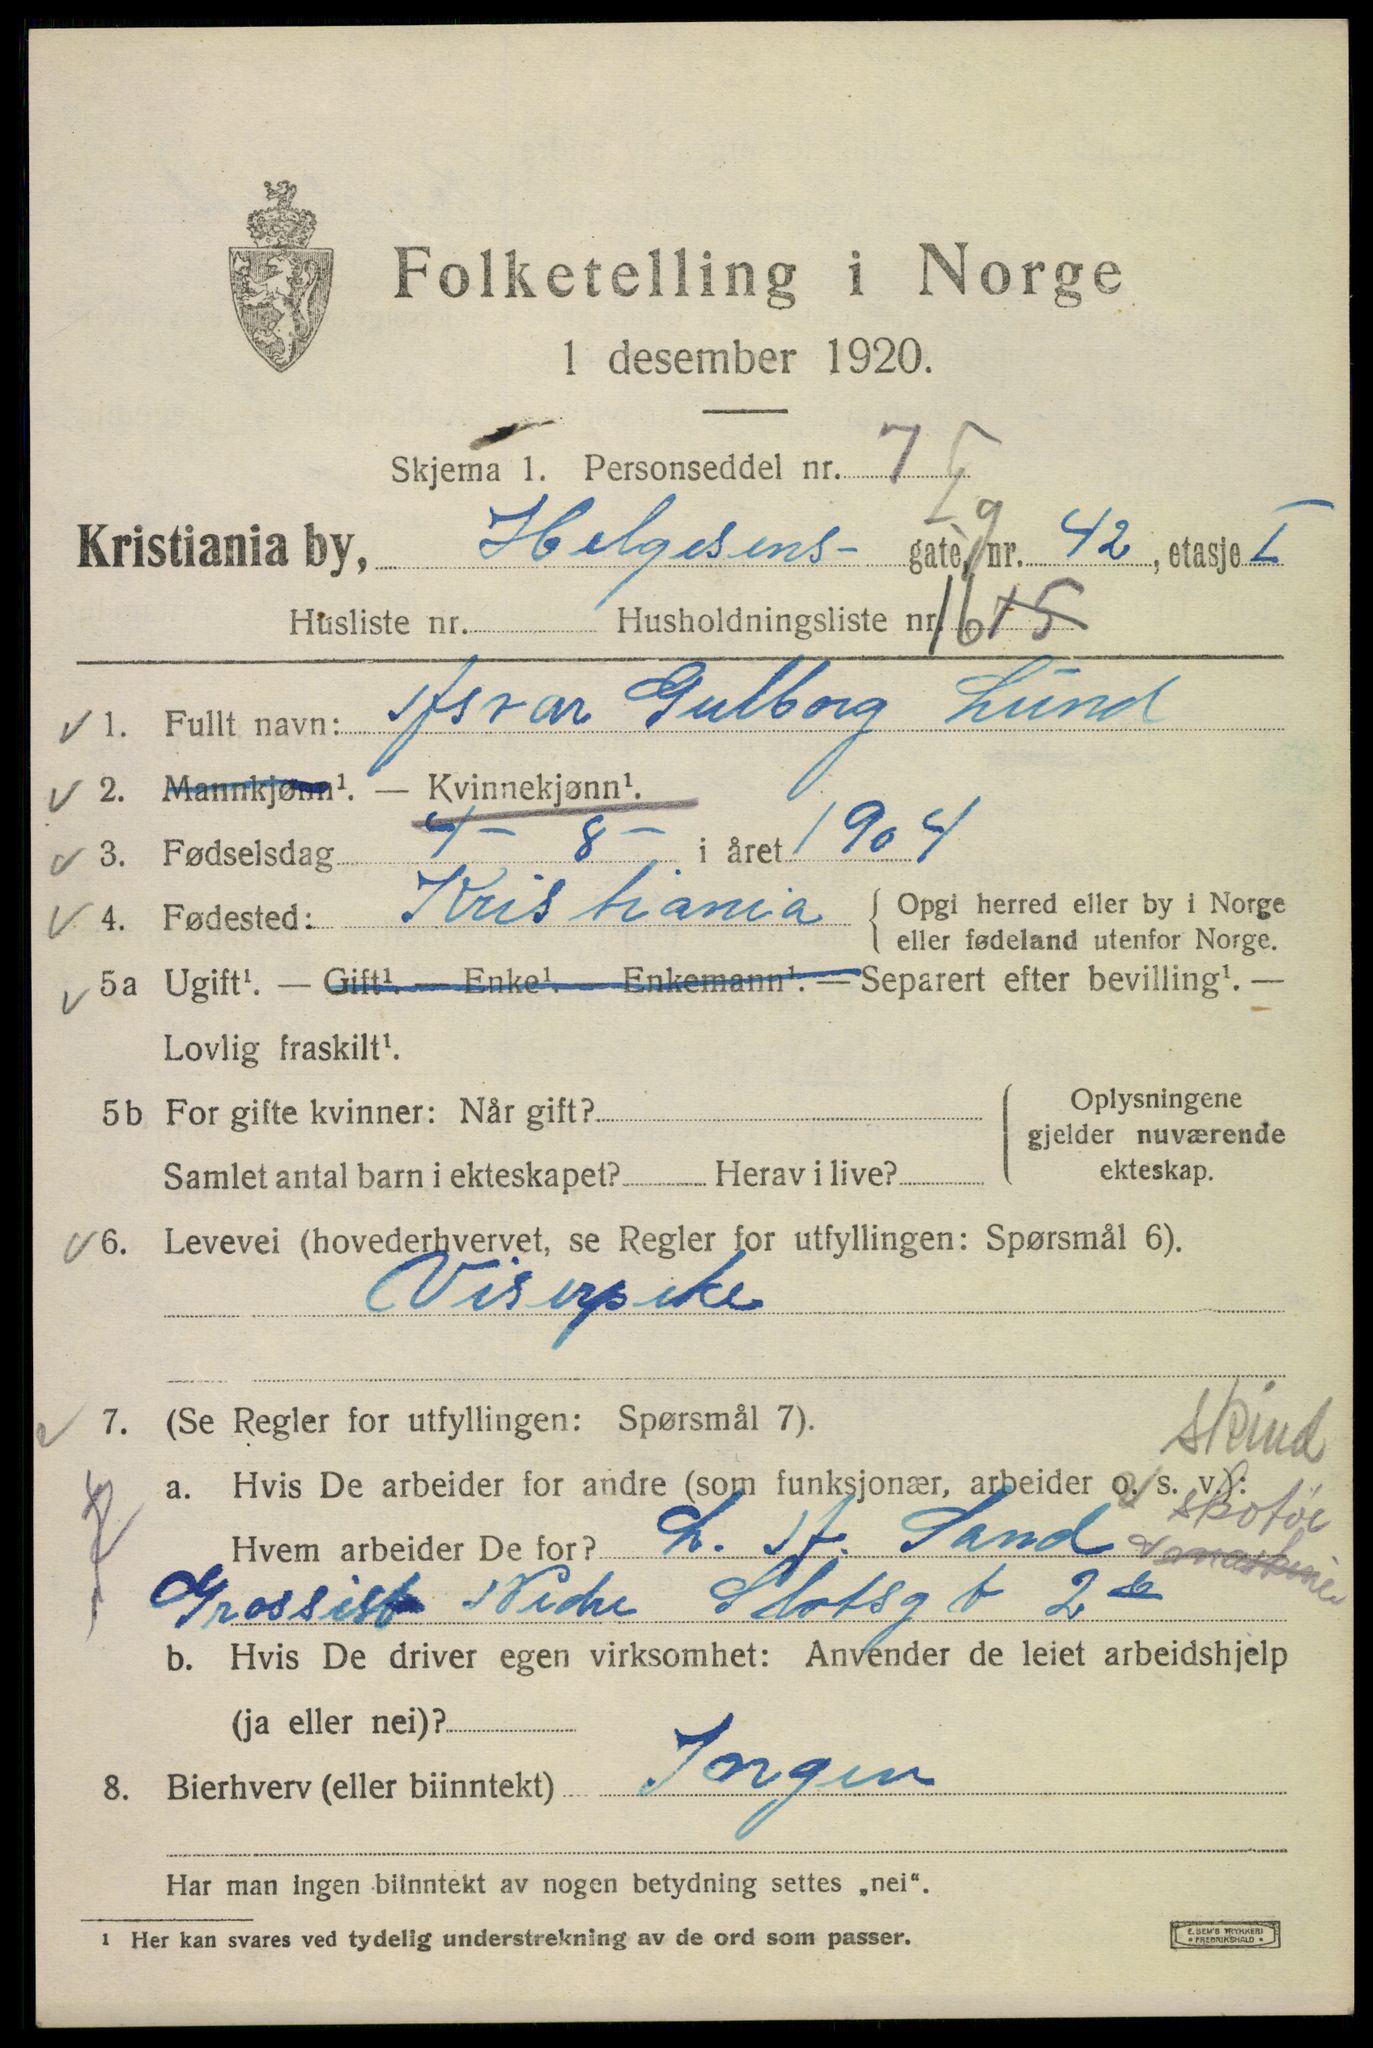 Folketelling i Norge
1 desember 1920.
Skjema 1. Personseddel nr. 7
Kristiania by, Helgesens- gate, nr. 42, etasje I
Husliste nr. Husholdningsliste nr. 16 15
1. Fullt navn: Asvar Gulborg Lund
2. Mannkjønn¹. — Kvinnekjønn¹.
3. Fødselsdag 4 - 8 - i året 1904
4. Fødested: Kristiania { Opgi herred eller by i Norge
eller fødeland utenfor Norge.
5a Ugift¹. — Gift¹. — Enke¹. — Enkemann¹. — Separert efter bevilling¹. —
Lovlig fraskilt¹.
5b For gifte kvinner: Når gift? { Oplysningene
gjelder nuværende
Samlet antal barn i ekteskapet? Herav i live? ekteskap.
6. Levevei (hovederhvervet, se Regler for utfyllingen: Spørsmål 6).
Viserpike
7. (Se Regler for utfyllingen: Spørsmål 7).
skind
a. Hvis De arbeider for andre (som funksjonær, arbeider o. s. v.):
skotøi
Hvem arbeider De for? L. A. Sand
Grossist Nedre Slotsgt 2
b. Hvis De driver egen virksomhet: Anvender de leiet arbeidshjelp
(ja eller nei)?
8. Bierhverv (eller biinntekt) Ingen
Har man ingen biinntekt av nogen betydning settes „nei“.
1 Her kan svares ved tydelig understrekning av de ord som passer.
E. SEM'S TRYKKERI
• FREDRIKSHALD •